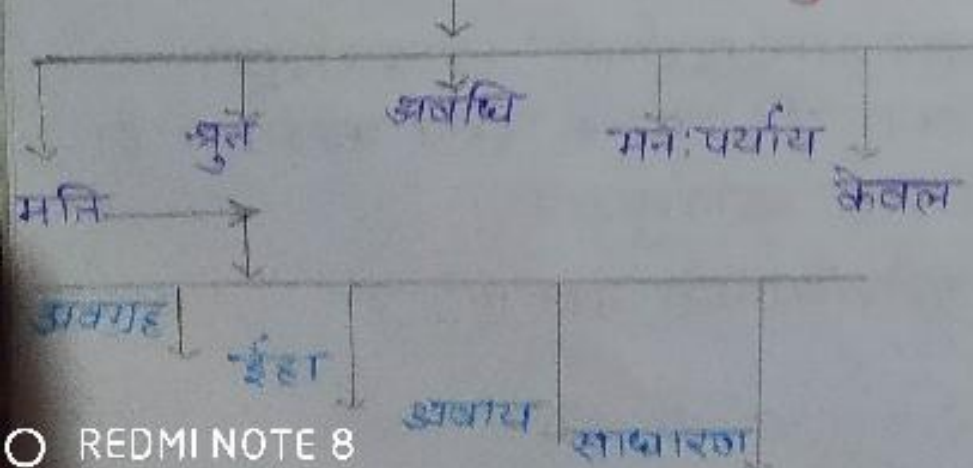 श्रुत
अवधि
मन:पर्याय
केवल
मति
अवग्रह
ईहा
अवाय
साधारण
REDMI NOTE 8